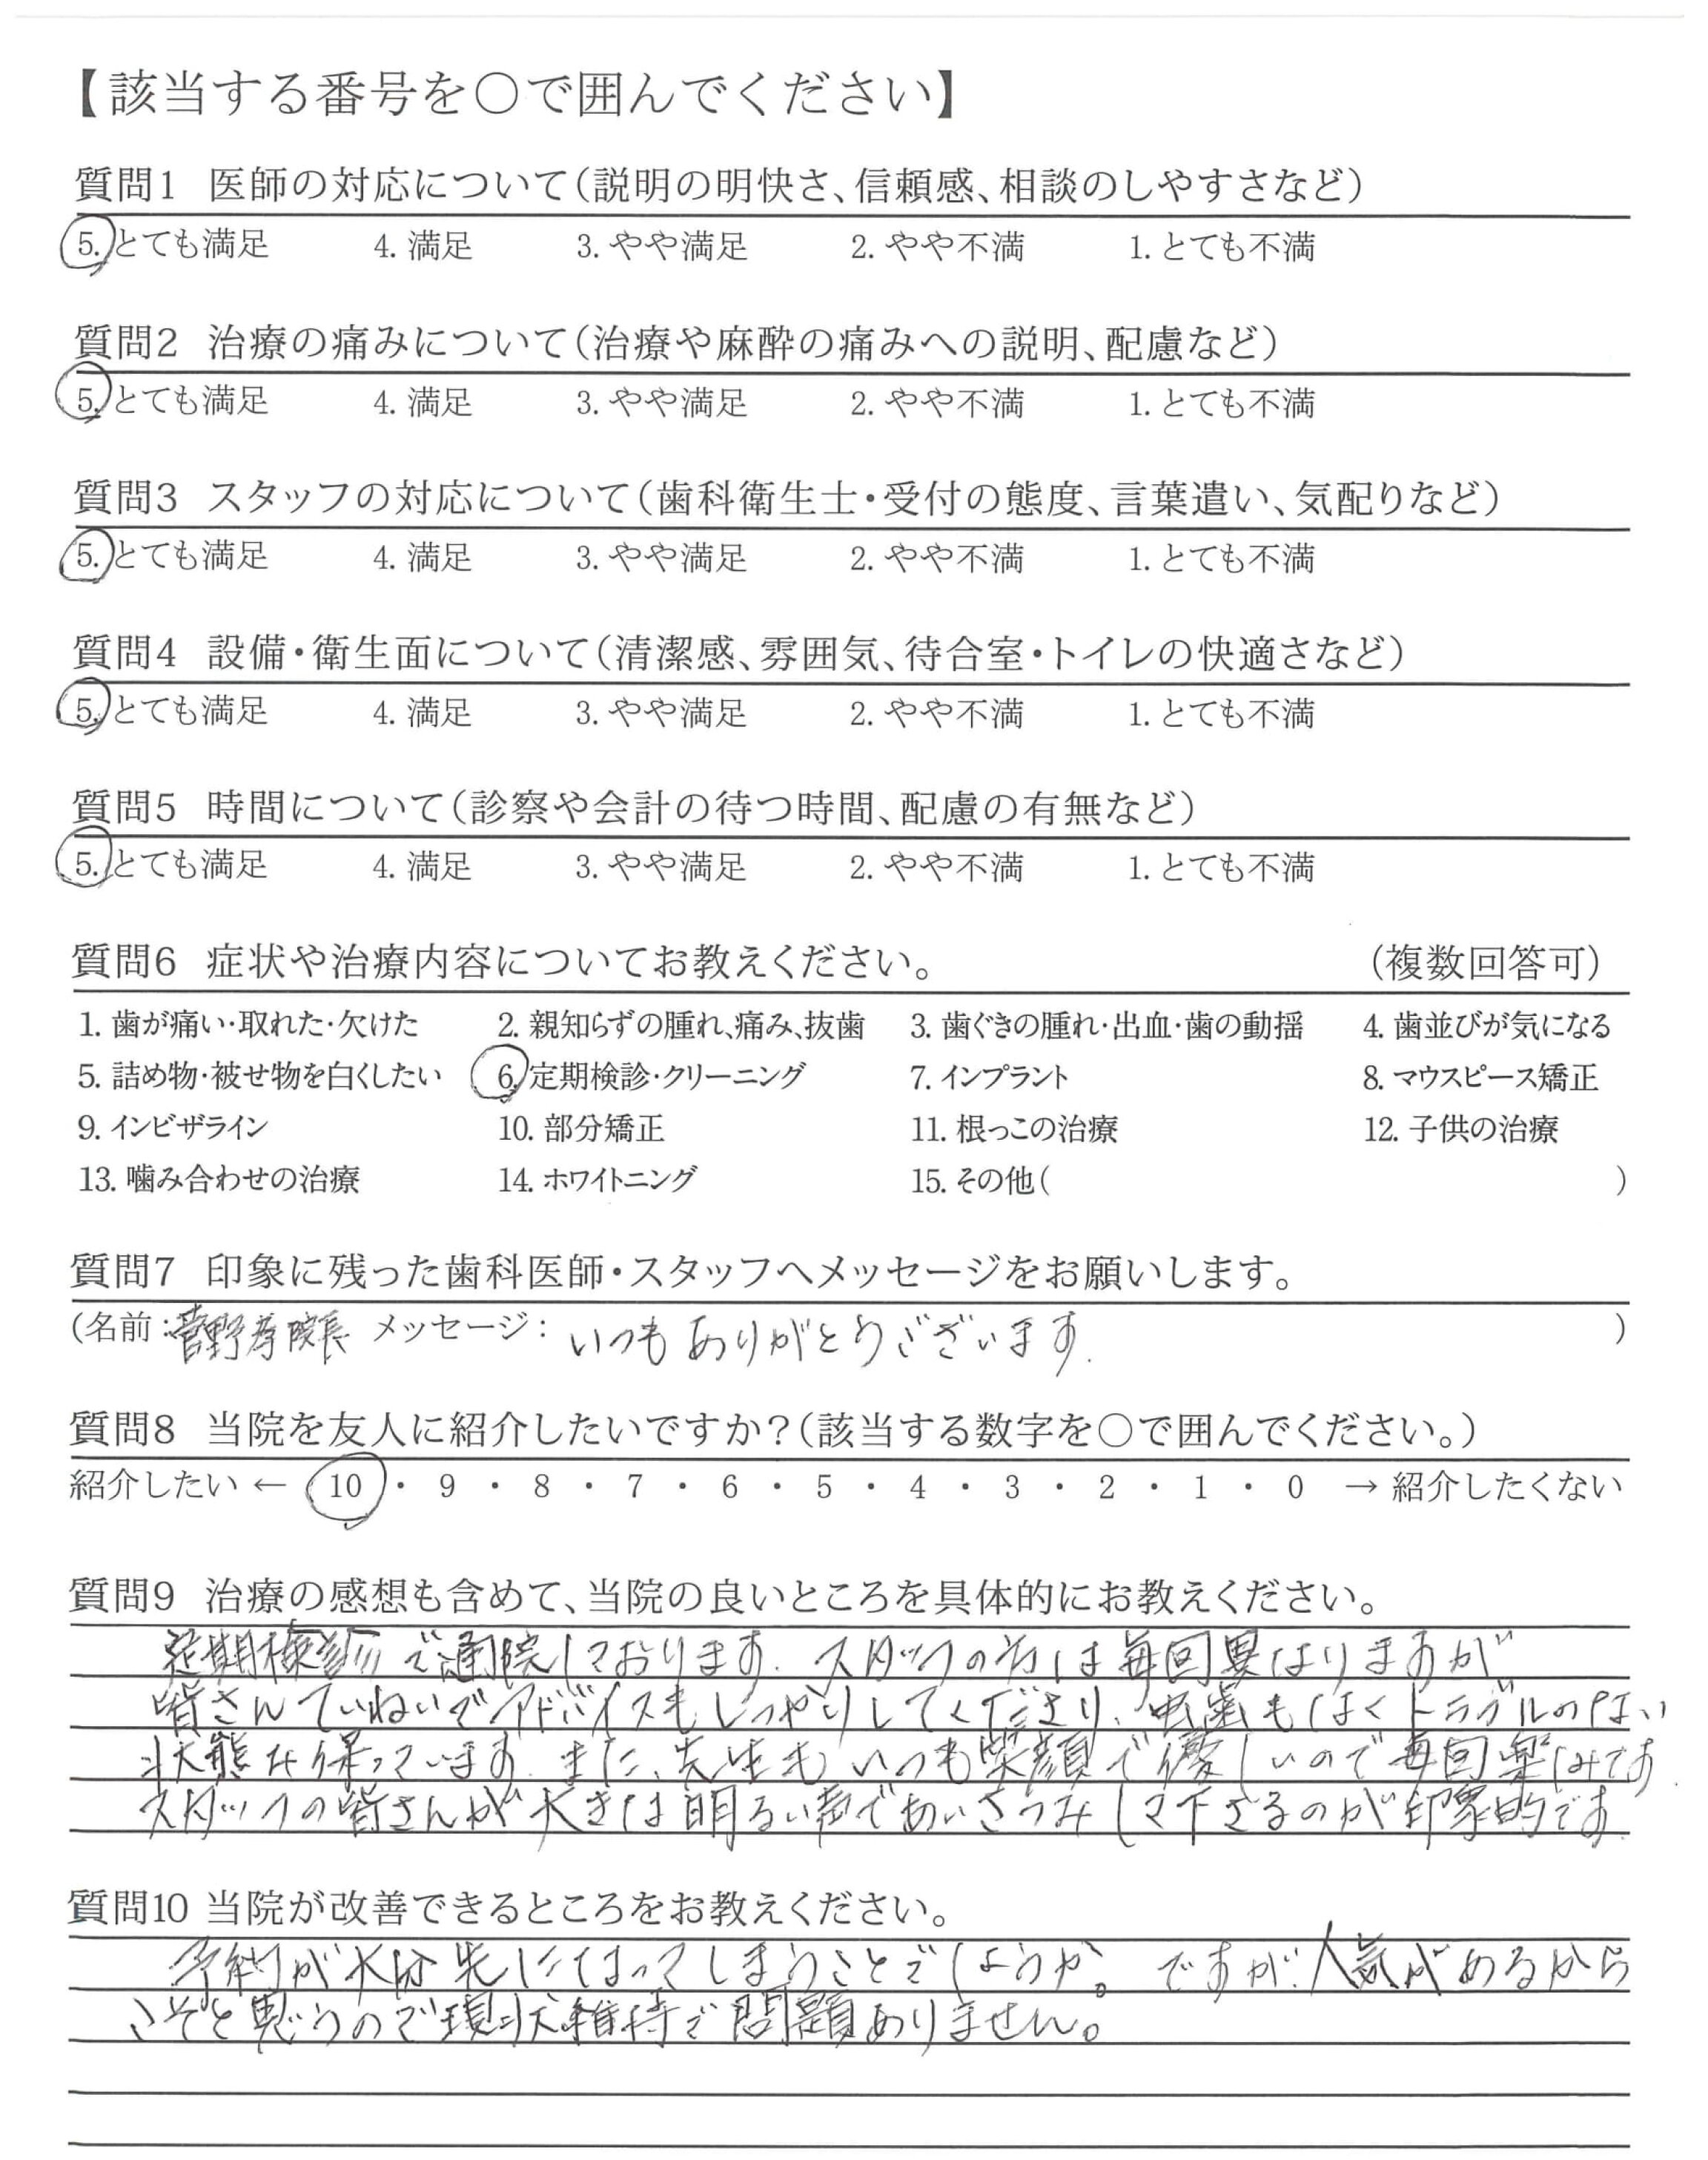 【該当する番号を○で囲んでください】
質問1 医師の対応について(説明の明快さ、信頼感、相談のしやすさなど)
5. とても満足 4. 満足 3. やや満足 2. やや不満 1. とても不満
質問2 治療の痛みについて(治療や麻酔の痛みへの説明、配慮など)
5. とても満足 4. 満足 3. やや満足 2. やや不満 1. とても不満
質問3 スタッフの対応について(歯科衛生士・受付の態度、言葉遣い、気配りなど)
5. とても満足 4. 満足 3. やや満足 2. やや不満 1. とても不満
質問4 設備・衛生面について(清潔感、雰囲気、待合室・トイレの快適さなど)
5. とても満足 4. 満足 3. やや満足 2. やや不満 1. とても不満
質問5 時間について(診察や会計の待つ時間、配慮の有無など)
5. とても満足 4. 満足 3. やや満足 2. やや不満 1. とても不満
質問6 症状や治療内容についてお教えください。 (複数回答可)
1. 歯が痛い・取れた・欠けた 2. 親知らずの腫れ、痛み、抜歯 3. 歯ぐきの腫れ・出血・歯の動揺 4. 歯並びが気になる
5. 詰め物・被せ物を白くしたい 6. 定期検診・クリーニング 7. インプラント 8. マウスピース矯正
9. インビザライン 10. 部分矯正 11. 根っこの治療 12. 子供の治療
13. 噛み合わせの治療 14. ホワイトニング 15. その他( )
質問7 印象に残った歯科医師・スタッフへメッセージをお願いします。
(名前:菅野孝院長 メッセージ: いつもありがとうございます. )
質問8 当院を友人に紹介したいですか?(該当する数字を○で囲んでください。)
紹介したい ← 10 ・ 9 ・ 8 ・ 7 ・ 6 ・ 5 ・ 4 ・ 3 ・ 2 ・ 1 ・ 0 → 紹介したくない
質問9 治療の感想も含めて、当院の良いところを具体的にお教えください。
定期検診で通院しております. スタッフの方は毎回異なりますが
皆さんていねいでアドバイスもしっかりしてくださり、虫歯もなくトラブルのない
状態を保っています. また、先生もいつも笑顔で優しいので毎回楽しみです.
スタッフの皆さんが大きな明るい声であいさつをして下さるのが印象的です.
質問10 当院が改善できるところをお教えください。
予約が大分先になってしまうことでしょうか。ですが、人気があるから
こそと思うので現状維持で問題ありません。